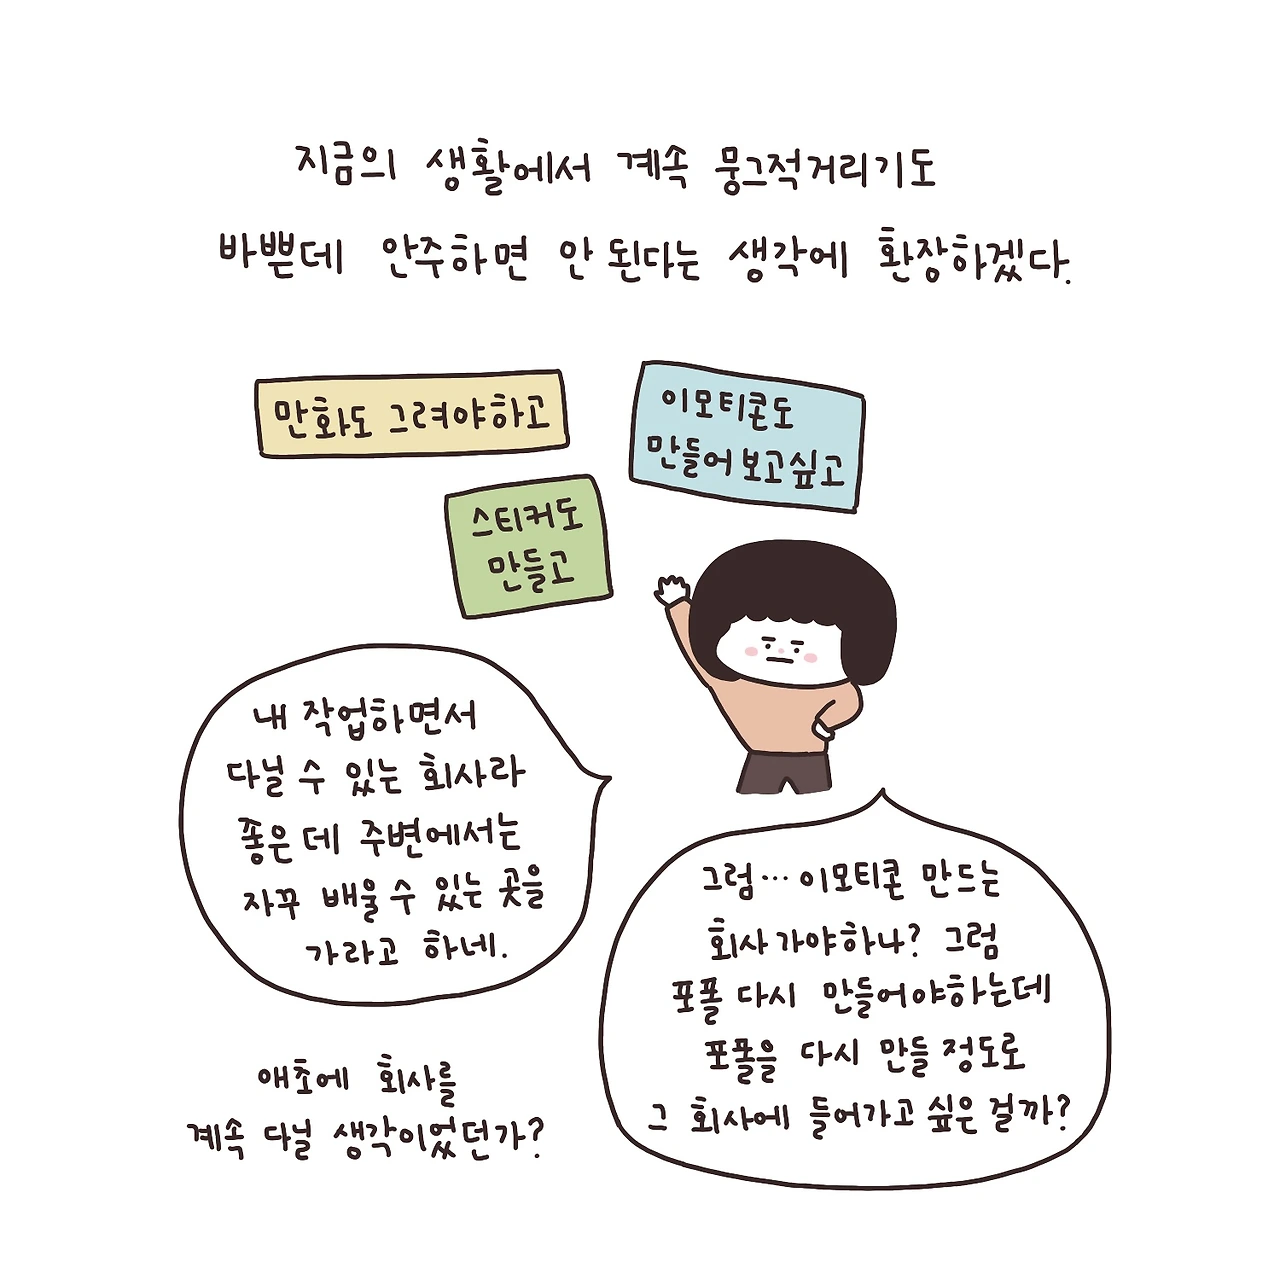 지금의 생활에서 계속 뭉그적거리기도
바쁜데 안주하면 안 된다는 생각에 환장하겠다.
만화도 그려야하고
이모티콘도
만들어 보고싶고
스티커도
만들고
내 작업하면서
다닐 수 있는 회사라
좋은데 주변에서는
자꾸 배울 수 있는 곳을
가라고 하네.
그럼… 이모티콘 만드는
회사 가야하나? 그럼
포폴 다시 만들어야하는데
포폴을 다시 만들 정도로
그 회사에 들어가고 싶은 걸까?
애초에 회사를
계속 다닐 생각이었던가?